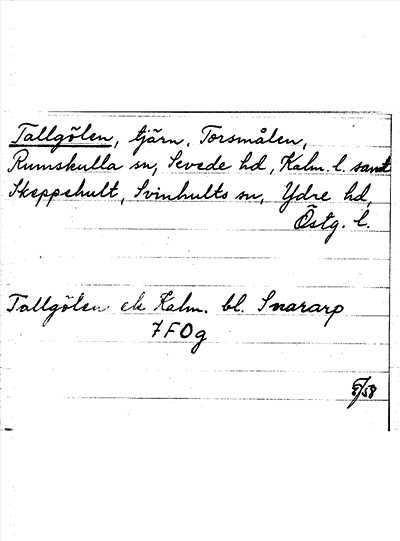 Tallgölen, tjärn, Torsmålen,
Rumskulla sn, Sevede hd, Kalm. l. samt
Skeppshult, Svinhults sn, Ydre hd,
Östg. l.
Tallgölen ek Kalm. bl. Snararp
7F0g
5/58